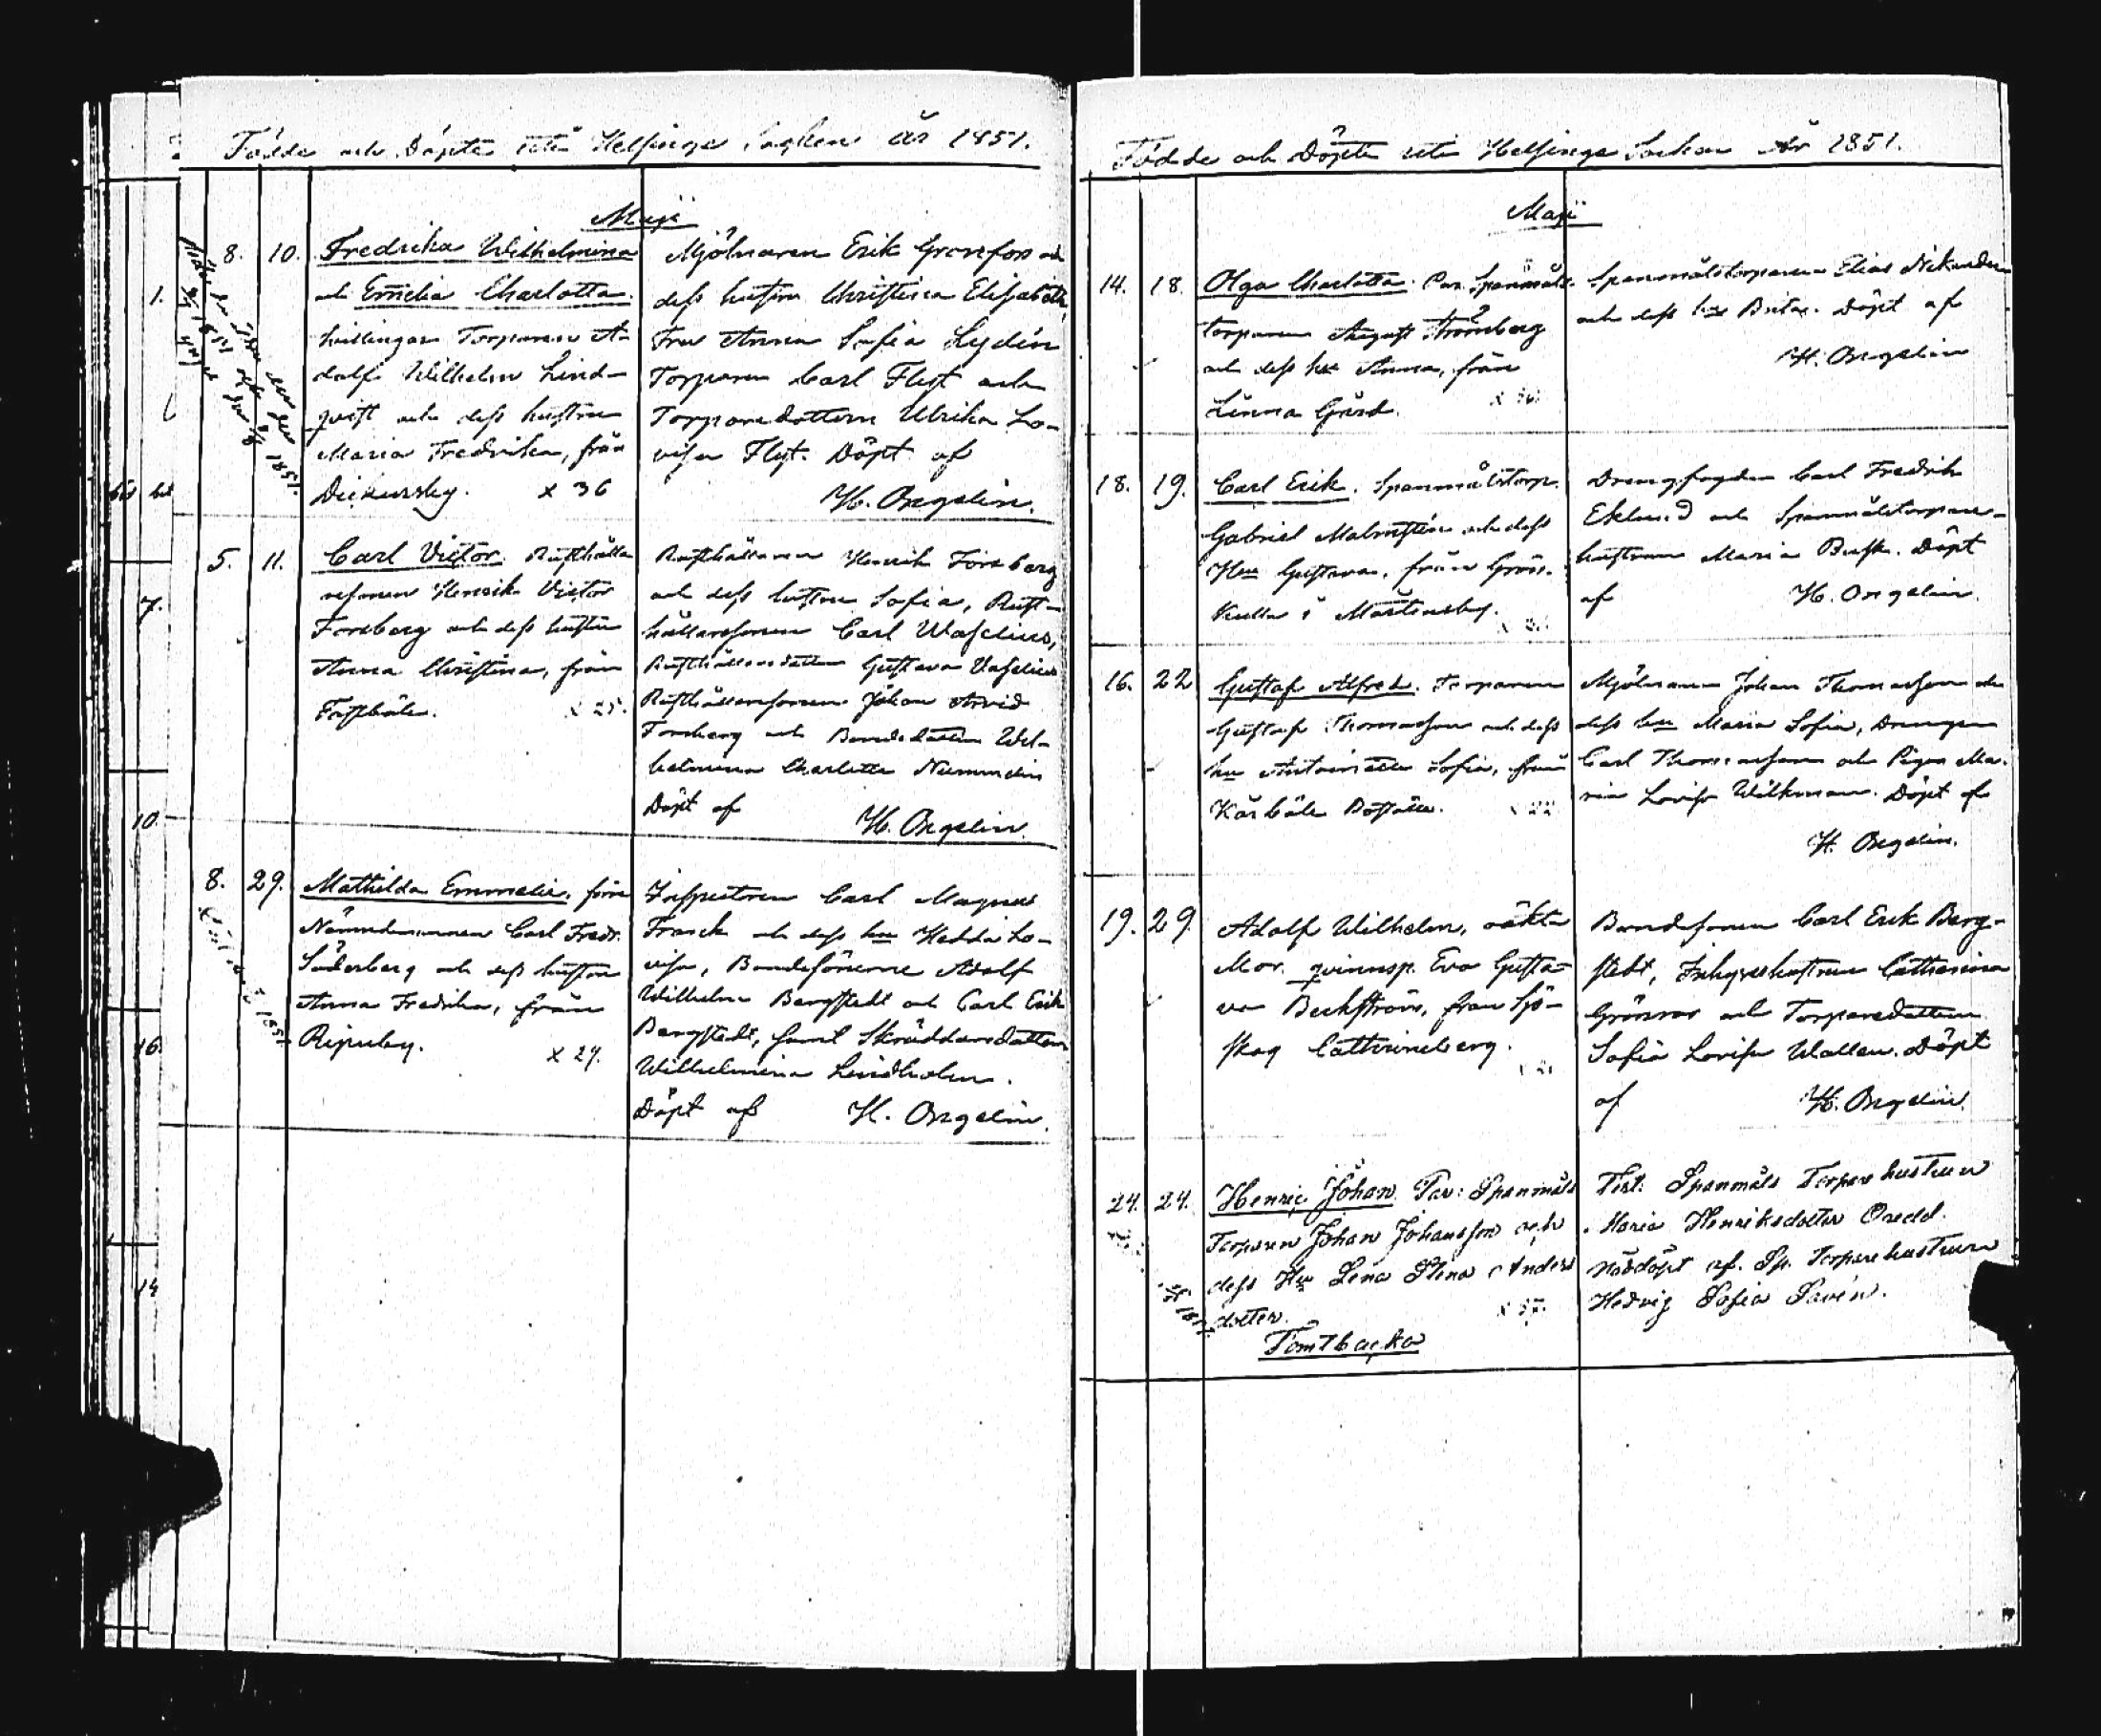 Födde och Döpte uti Helsinge Socken år 1851.
Maji
8. 10. Fredrika Wilhelmina
och Emelia Charlotta.
tvillingar Torparen A-
dolf Wilhelm Lind-
qvist och dess hustru
Maria Fredrika, från
Dickursby. x 36
Mjölnaren Erik Granfors och
dess hustru Christina Elisabeth,
Fru Anna Sofia Lydén
Torparen Carl Flyt och
Torparedottern Ulrika Lo-
visa Flyt. Döpt af
H. Orgelin.
5. 11. Carl Victor. Rusthålla-
resonen Henrik Victor
Forsberg och dess hustru
Anna Christina, från
Fastböle. x 25.
Rusthållaren Henrik Forsberg
och dess hustru Sofia, Rust-
hållaresonen Carl Waselius,
Rusthållaredottern Gustava Vaselius
Rusthållaresonen Johan Arvid
Forsberg och Bondedottern Wil-
helmina Charlotta Nummelin
Döpt af
H. Orgelin.
8. 29. Mathilda Emmelie. förre
Nämndemannen Carl Fredr.
Söderberg och dess hustru
Anna Fredrika, från
Ripuby. x 29.
Inspectoren Carl Magnus
Franck och dess hu Hedda Lo-
visa, Bondesönerne Adolf
Wilhelm Bergstedt och Carl Erik
Bergstedt, samt Skräddaredottern
Wilhelmina Lindholm.
Döpt af H. Orgelin.
1.
7.
10.
16.
14
Födde och Döpte uti Helsinge Socken År 1851.
Maji
14. 18. Olga Charlotta. Par. Spanmåls-
torparen August Strömberg
och dess hu Anna, från
Linna Gård.
Spanmålstorparen Elias Nikander
och dess hu Brita. Döpt af
H. Orgelin
18. 19. Carl Erik. Spanmålstorp.
Gabriel Malmstén och dess
Hu Gustava, från Grös-
kulla i Mårtensby.
Drengfogden Carl Fredrik
Eklund och Spanmålstorpare-
hustrun Maria Busk. Döpt
af H. Orgelin.
16. 22 Gustaf Alfred. Torparen
Gustaf Thomasson och dess
hu Antoinette Sofia, från
Kårböle Boställe. x 22
Mjölnaren Johan Thomasson och
dess hu Maria Sofia, Drengen
Carl Thomasson och Pigan Ma-
ria Lovisa Wilkman. Döpt af
H. Orgelin.
19. 29. Adolf Wilhelm, oäkta
Mor. qvinnsp. Eva Gusta-
va Beckström, från Sjö-
skog Catharineberg.
Bondesonen Carl Erik Berg-
stedt, Inhyseshustrun Catharina
Grönroos och Torparedottern
Sofia Lovisa Wallen. Döpt
af H. Orgelin.
24. 24. Henric Johan. Par: Spanmåls
Torparen Johan Johansson och
dess Hu Lena Stina Anders
dotter.
Tomtbacka
Test: Spanmåls Torpare hustrun
Maria Henriksdotter Oredd.
nöddöpt af. Sp. Torpare hustrun
Hedvig Sofia Savén.